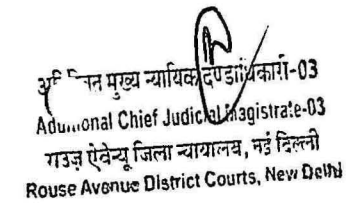 मुख्य न्यायिक दण्डाधिकारी-03
Additional Chief Judicial Magistrate-03
राउज़ ऐवेन्यू जिला न्यायालय, नई दिल्ली
Rouse Avenue District Courts, New Delhi